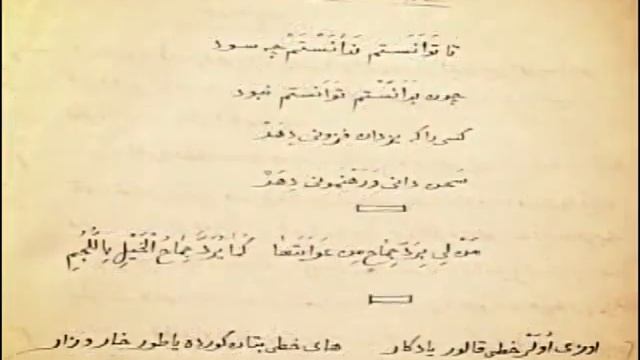 تا تَوَانَستم نَدَانَسْتَمْ چه سود
چون بَدَانَسْتم توَانَستم نبود
کسی را که یزدان فزونی دِهَدْ
سَخن دانی وَرَهْنمونی دِهَدْ
مَنْ لِي بِرَدِّ جِمَاحٍ مِن غَوَايَتِهَا كَمَا يُرَدُّ جِمَاحُ الْخَيْلِ بِاللُّجُمِ
اوزی اُولَر خطی قالور یادکار های خطی یاطور خار و زار